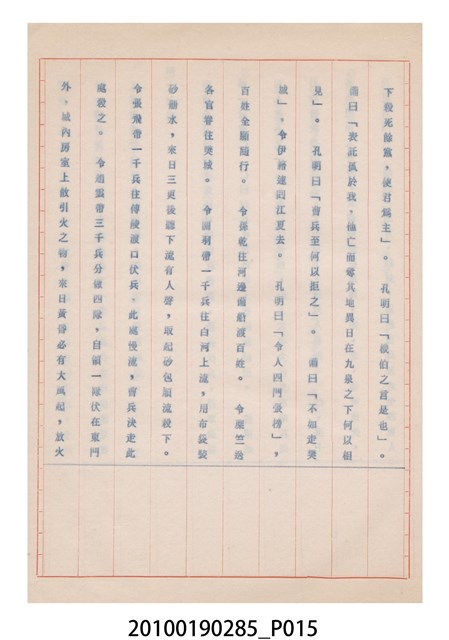 下殺死餘黨，使君爲主」。　孔明曰「機伯之言是也」。
備曰「表託孤於我，他亡而奪其地異日在九泉之下何以相
見」。　孔明曰「曹兵至何以拒之」。　備曰「不如走樊
城」，令伊籍速回江夏去。　孔明曰「令人四門張榜」，
百姓全願隨行。　令孫乾往河邊備船渡百姓。　令糜竺過
各官眷往樊城。　令關羽帶一千兵往白河上流，用布袋裝
砂塞水，來日三更後聽下流有人聲，取起砂包順流殺下。
令張飛帶一千兵往博陵渡口伏兵，此處慢流，曹兵決走此
處殺之。　令趙雲帶三千兵分做四隊，自領一隊伏在東門
外，城內房室上放引火之物，來日黃昏必有大風起，放火
20100190285_P015